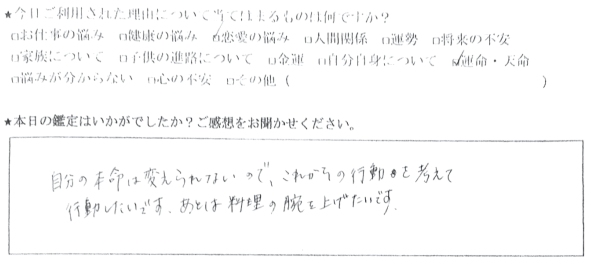 ★今日ご利用された理由について当てはまるものは何ですか？
□お仕事の悩み □健康の悩み ☑恋愛の悩み □人間関係 □運勢 □将来の不安
□家族について □子供の進路について □金運 □自分自身について ☑運命・天命
□悩みが分からない □心の不安 □その他（ ）
★本日の鑑定はいかがでしたか？ご感想をお聞かせください。
自分の本命は変えられないので、これからの行動を考えて
行動したいです。あとは料理の腕を上げたいです。